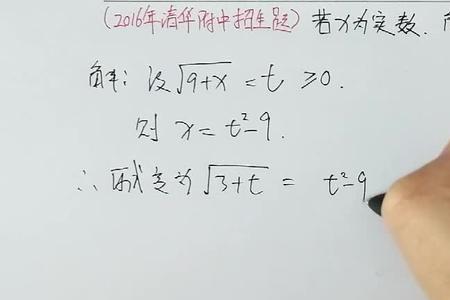 (2016年清华附中招生题) 若x为实数.
解: 设√(9+x) = t ≥0.
则 x = t²-9.
∴ 原式变为 √(3+t) = t²-9